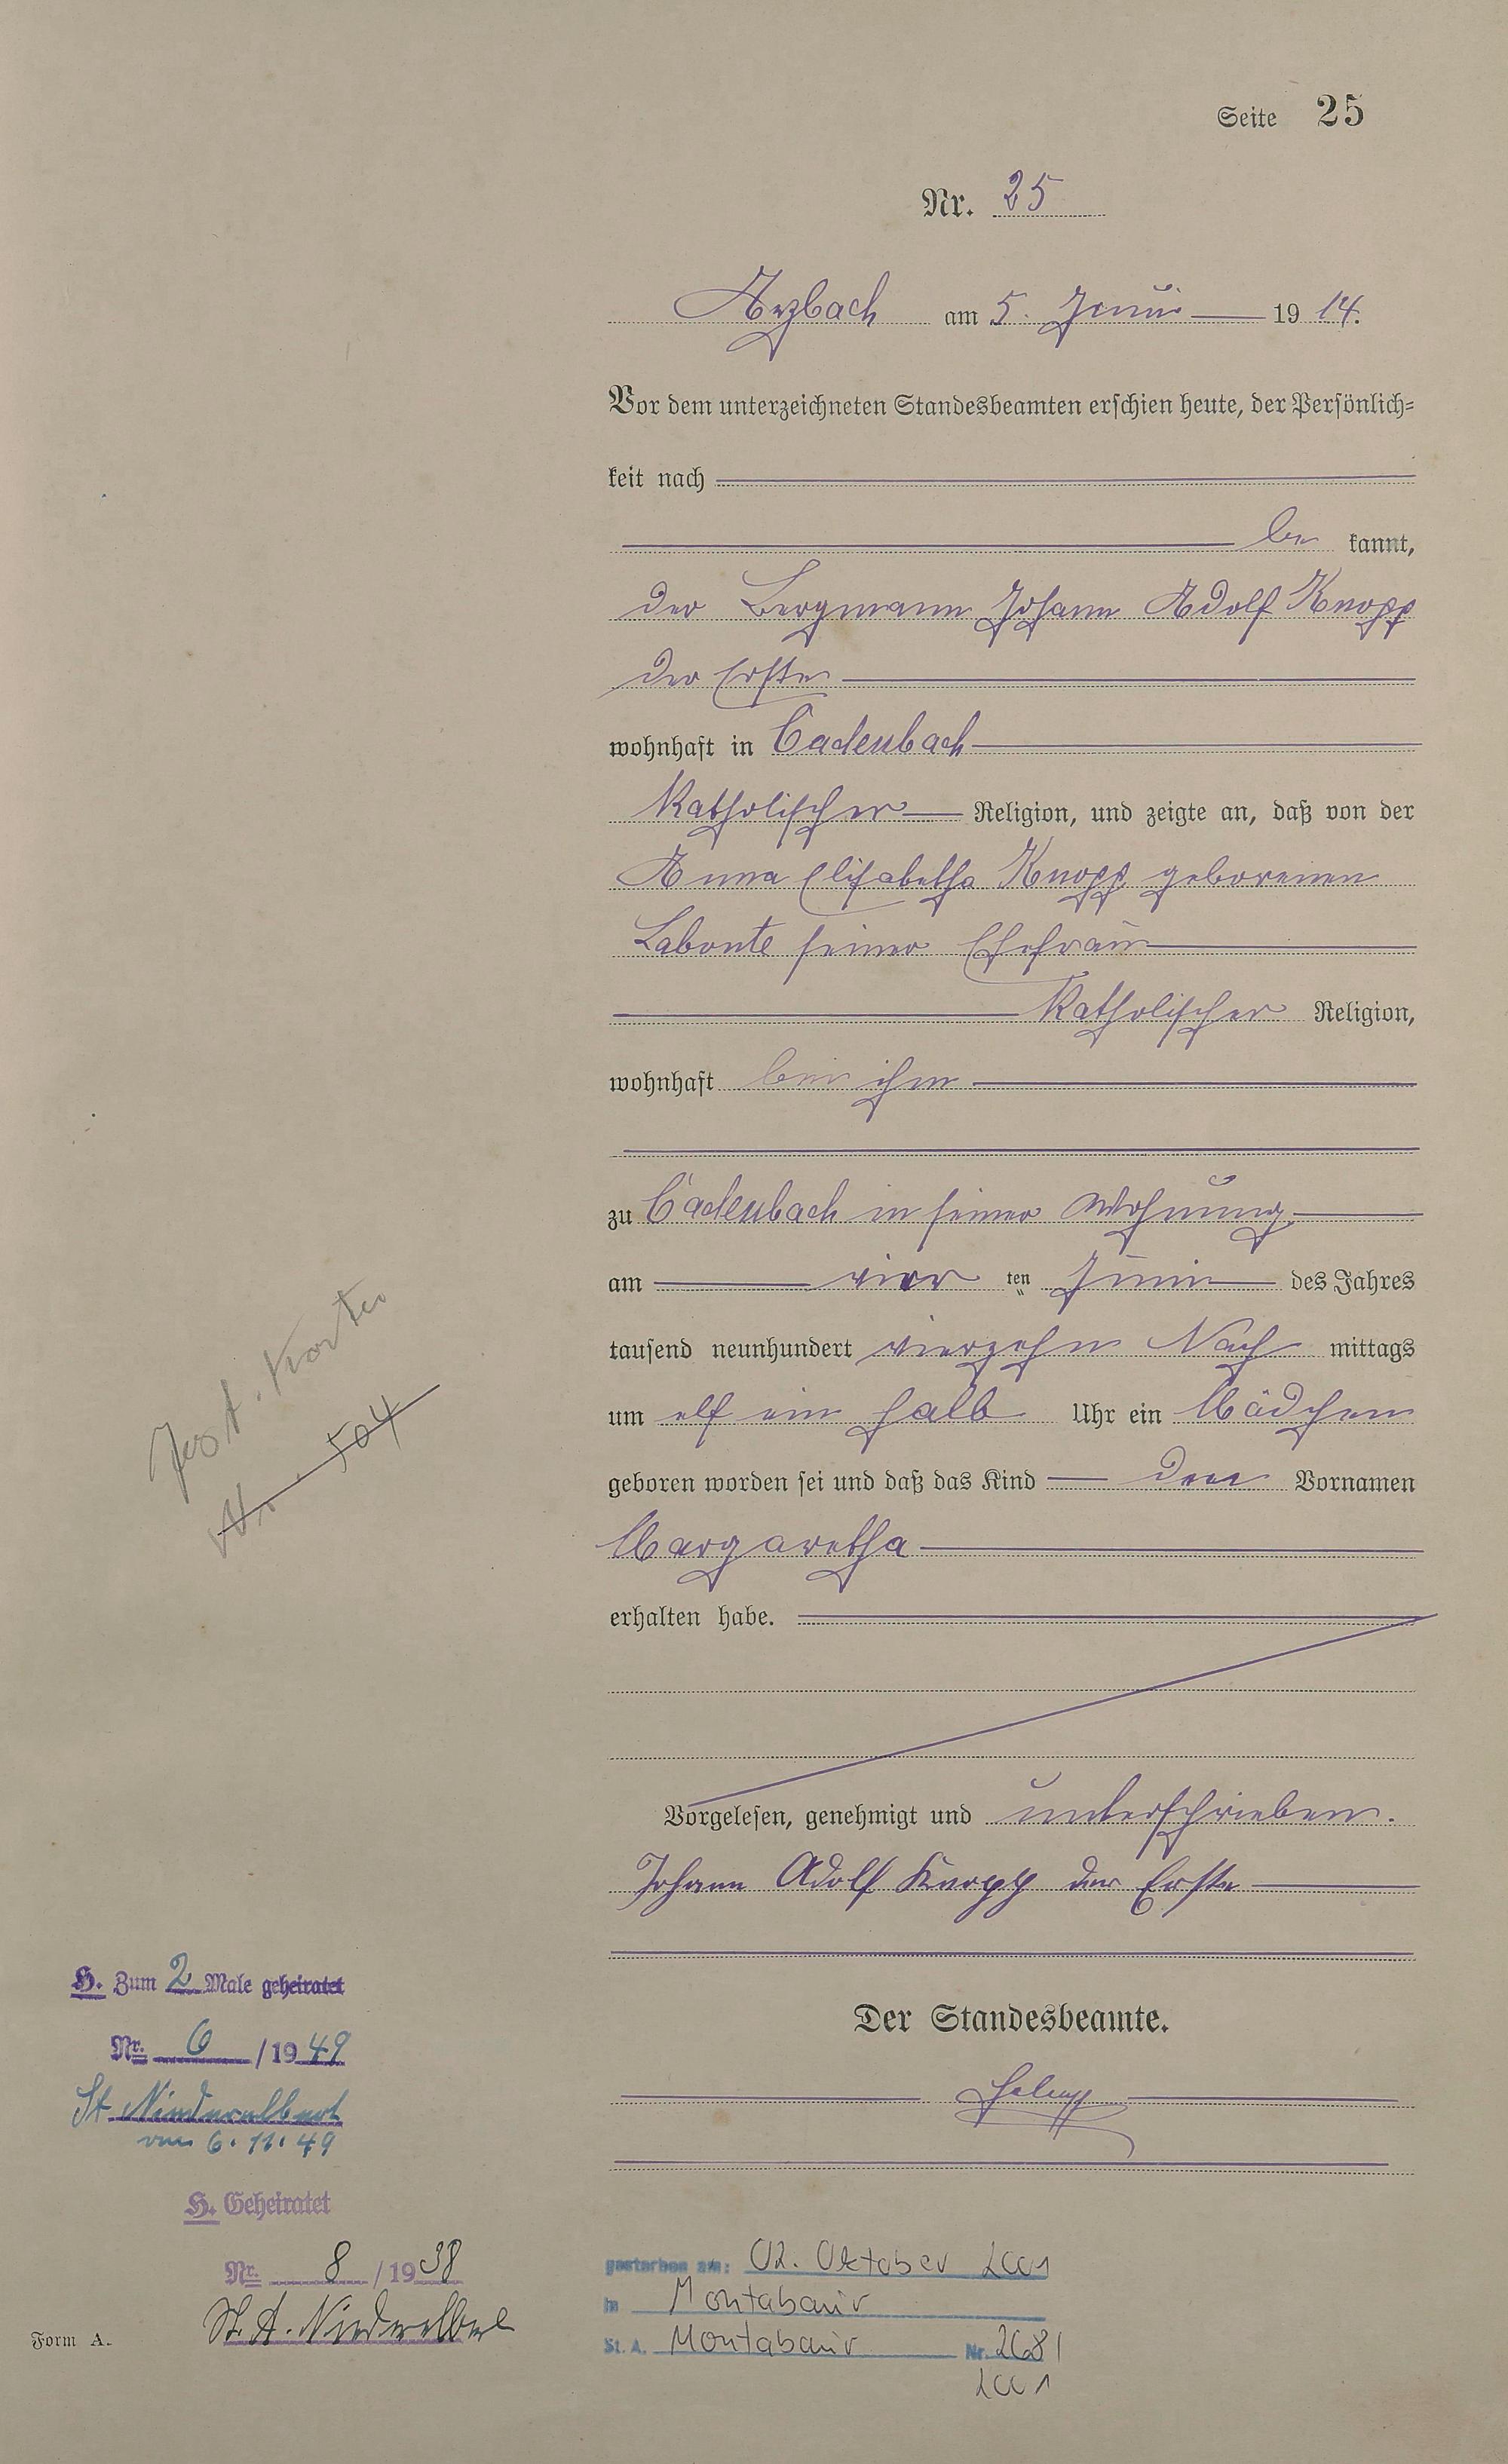 Seite 25
Nr. 25
Arzbach am 5. Juni 1914.
Vor dem unterzeichneten Standesbeamten erschien heute, der Persönlich=
keit nach
be kannt,
der Bergmann Johann Adolf Knopp
der Erste
wohnhaft in Cadenbach
katholischer Religion, und zeigte an, daß von der
Anna Elisabetha Knopp geborenen
Labonte seiner Ehefrau
katholischer Religion,
wohnhaft bei ihm
zu Cadenbach in seiner Wohnung
am vier ten Juni des Jahres
tausend neunhundert vierzehn Nach mittags
um elf ein halb Uhr ein Mädchen
geboren worden sei und daß das Kind den Vornamen
Margaretha
erhalten habe.
Vorgelesen, genehmigt und unterschrieben.
Johann Adolf Knopp der Erste
Der Standesbeamte.
Nr. 504
H. Zum 2 Male geheiratet
Nr. 6 / 1949
St Niederelbert
vom 6.11.49
H. Geheiratet
Nr. 8 / 1938
St. A. Niederelbert
Form A.
gestorben am: 02. Oktober 2001
in Montabaur
St. A. Montabaur Nr. 268/
2001